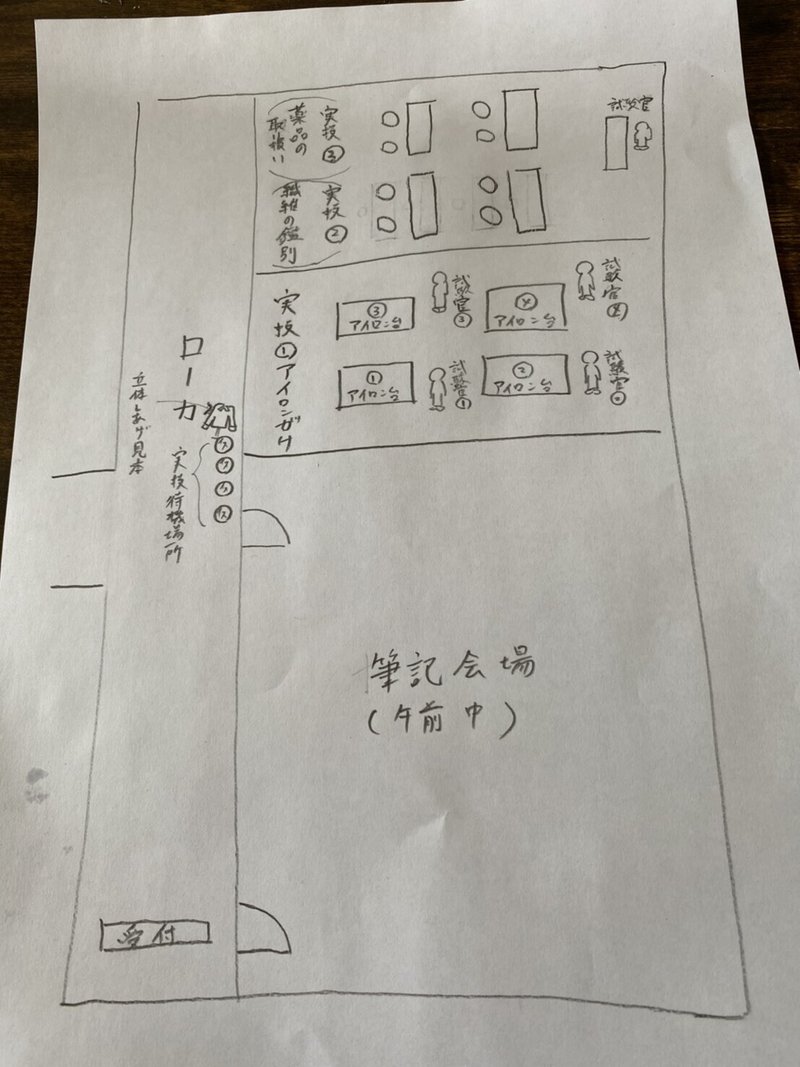 実技③
薬品の
取扱い
試験官
実技②
繊維の鑑別
実技①アイロンがけ
③
アイロン台
試験官③
④
アイロン台
試験官④
①
アイロン台
試験官①
②
アイロン台
試験官②
ローカ
立体しあげ見本
実技待機場所
筆記会場
(午前中)
受付